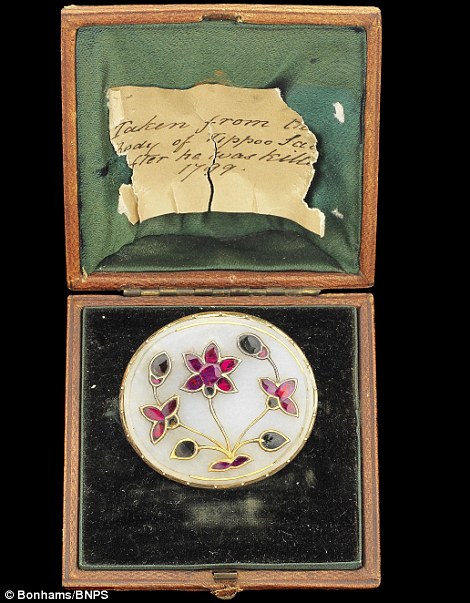 Taken from the
body of Tippoo Sa
after he was kill
1799.
© Bonhams/BNPS